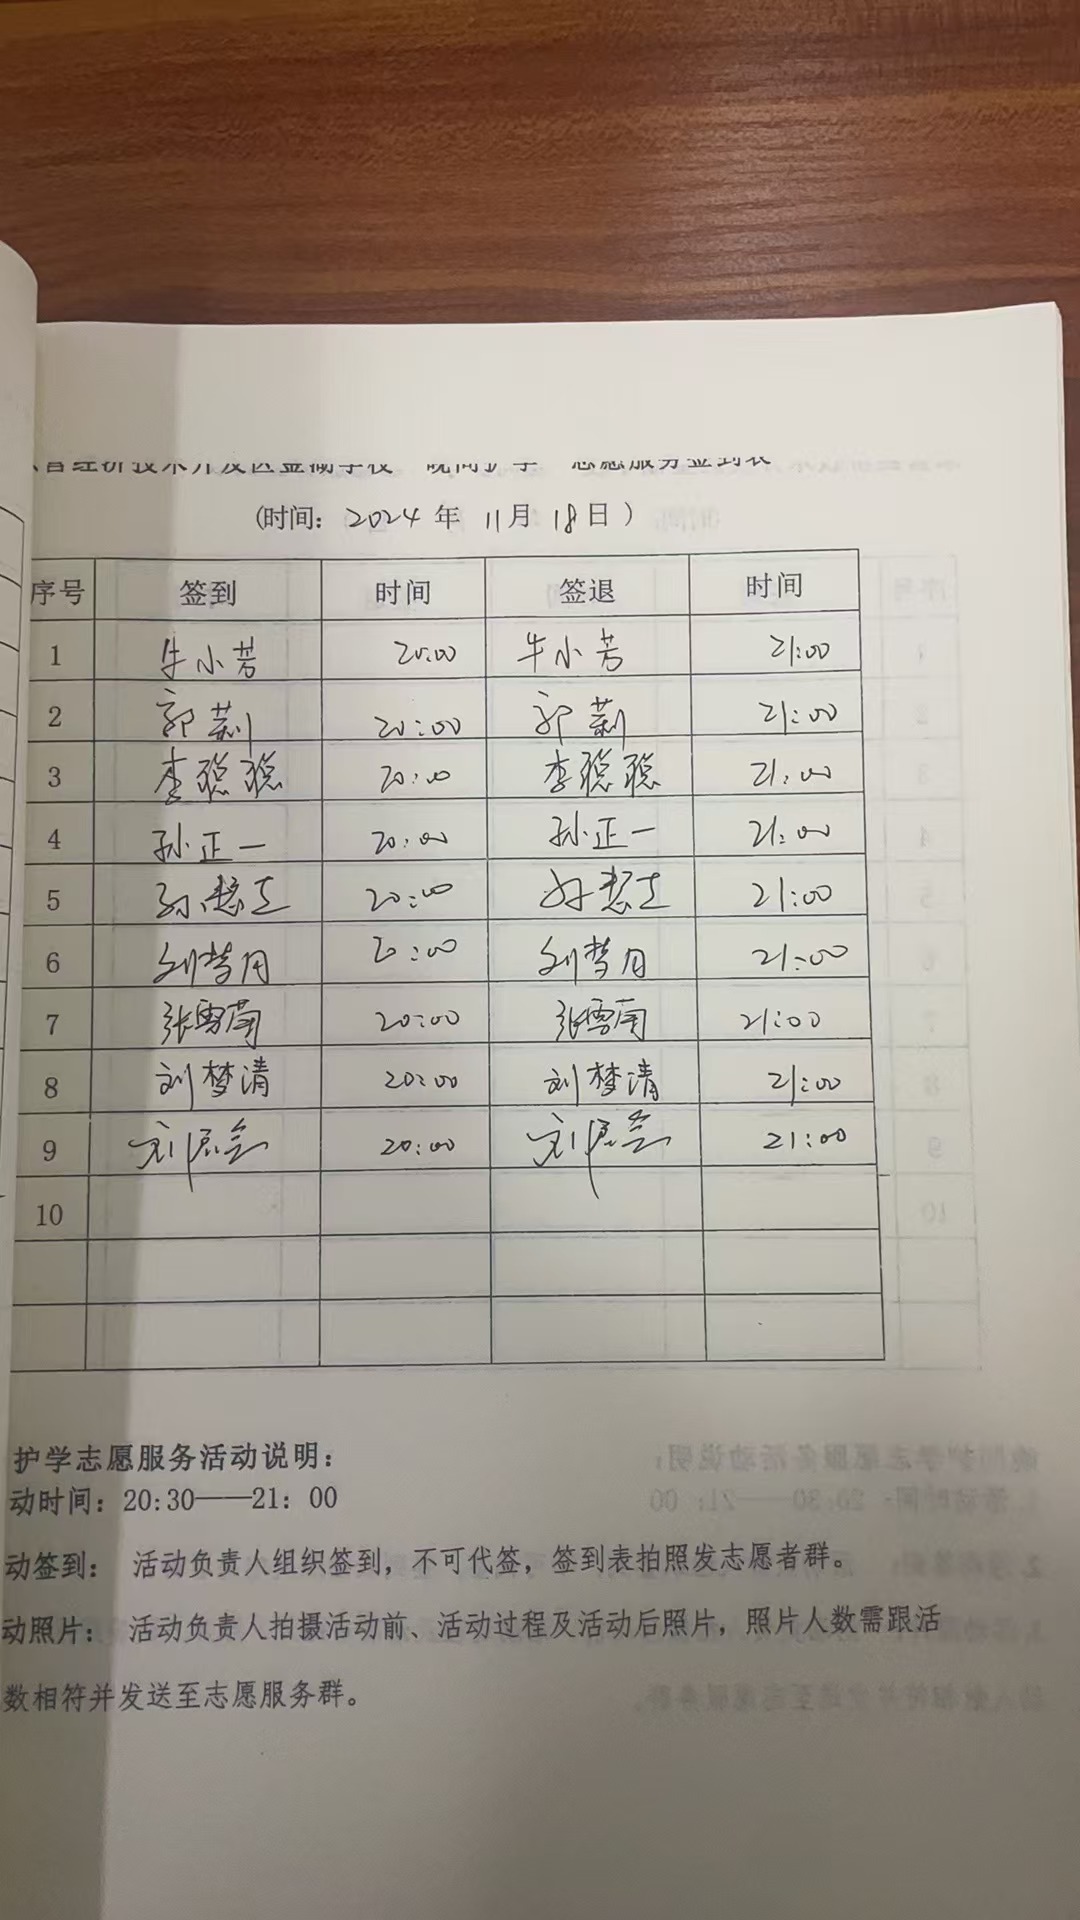 营经济技术开发区金湖学校“晚间护学”志愿服务签到表
(时间: 2024 年 11月 18日 )
序号 签到 时间 签退 时间
1 牛小芳 20:00 牛小芳 21:00
2 郭莉 20:00 郭莉 21:00
3 李聪聪 20:00 李聪聪 21:00
4 孙正一 20:00 孙正一 21:00
5 20:00 21:00
6 刘梦月 20:00 刘梦月 21:00
7 张雪菊 20:00 张雪菊 21:00
8 刘梦清 20:00 刘梦清 21:00
9 20:00 21:00
10
护学志愿服务活动说明:
动时间: 20:30——21: 00
动签到: 活动负责人组织签到, 不可代签, 签到表拍照发志愿者群。
动照片: 活动负责人拍摄活动前、活动过程及活动后照片, 照片人数需跟活
数相符并发送至志愿服务群。